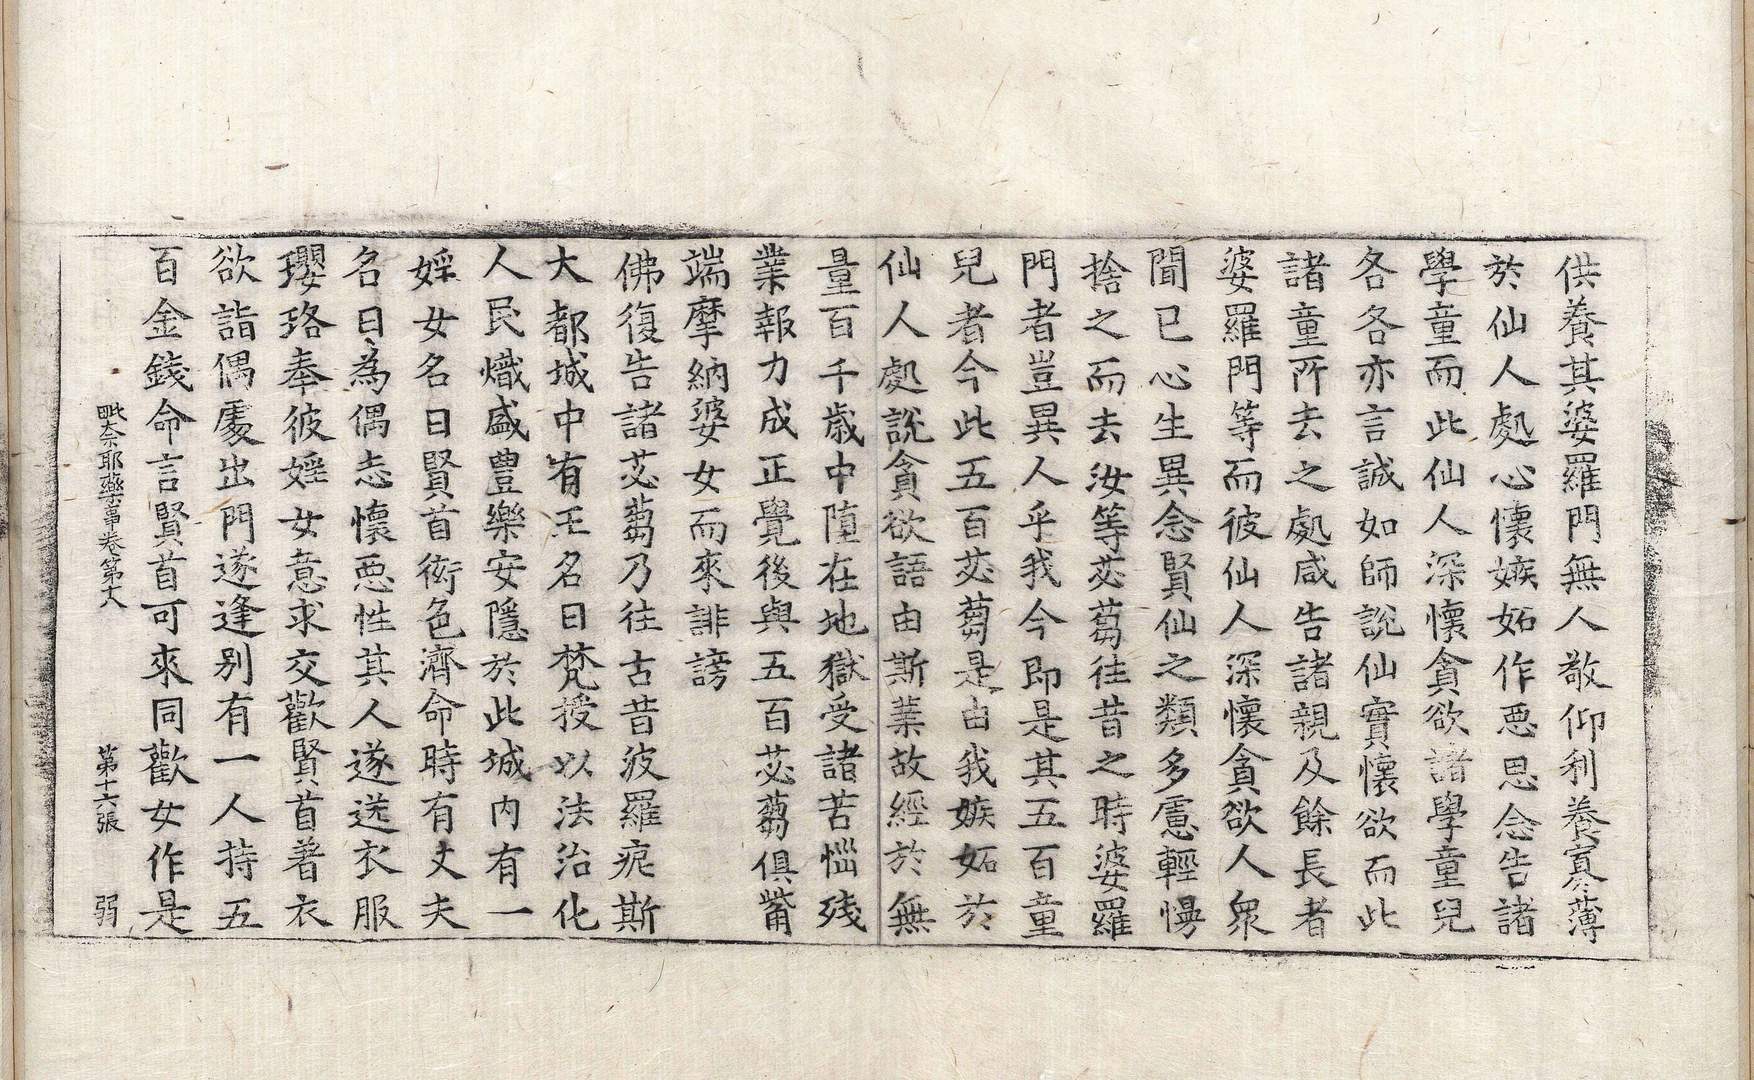 供養其婆羅門無人敬仰利養寡薄
於仙人處心懷嫉妬作惡思念告諸
學童而此仙人深懷貪欲諸學童兒
各各亦言誠如師說仙實懷欲而此
諸童所去之處咸告諸親及餘長者
婆羅門等而彼仙人深懷貪欲人衆
聞已心生異念賢仙之類多慮輕慢
捨之而去汝等苾蒭往昔之時婆羅
門者豈異人乎我今即是其五百童
兒者今此五百苾蒭是由我嫉妬於
仙人處說貪欲語由斯業故經於無
量百千歲中墮在地獄受諸苦惱殘
業報力成正覺後與五百苾蒭俱觜
端摩納婆女而來誹謗
佛復告諸苾蒭乃往古昔波羅痆斯
大都城中有王名曰梵授以法治化
人民熾盛豊樂安隱於此城內有一
婬女名曰賢首衒色濟命時有丈夫
名曰為偶志懷惡性其人遂送衣服
瓔珞奉彼婬女意求交歡賢首著衣
欲詣偶處出門遂逢别有一人持五
百金錢命言賢首可來同歡女作是
毗奈耶藥事卷第十八　第十六張　弱